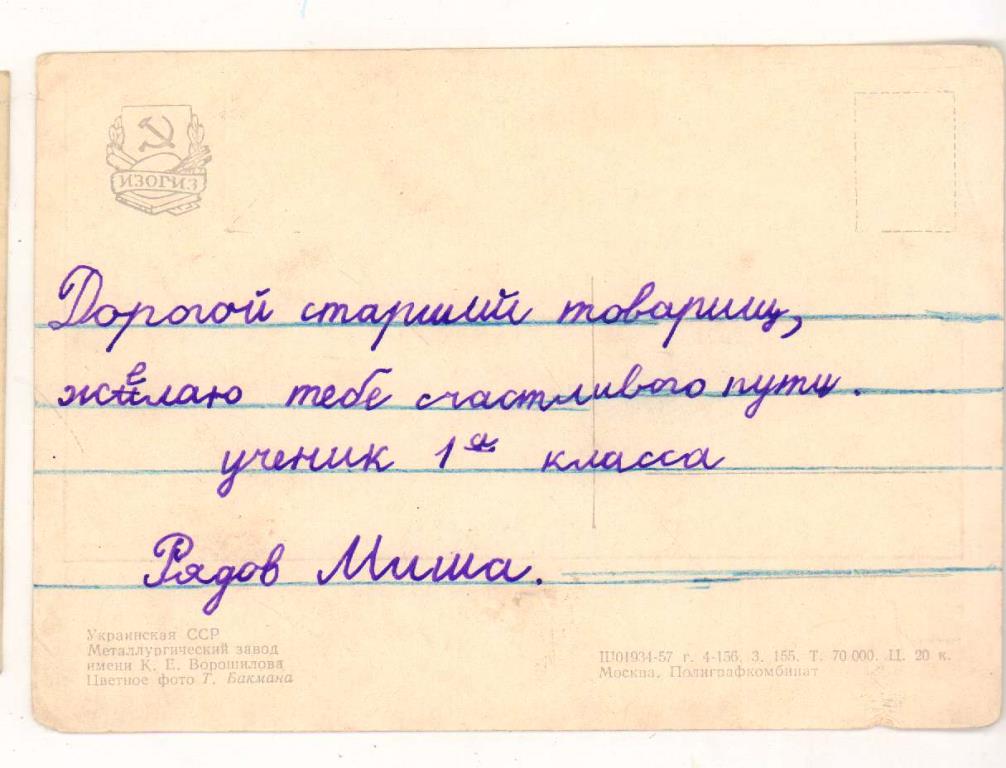 ИЗОГИЗ
Дорогой старший товарищ,
желаю тебе счастливого пути.
ученик 1а класса
Рядов Миша.
Украинская ССР
Металлургический завод
имени К. Е. Ворошилова
Цветное фото Т. Бакмана
Ш01934-57 г. 4-156. З. 155. Т. 70 000. Ц. 20 к.
Москва. Полиграфкомбинат